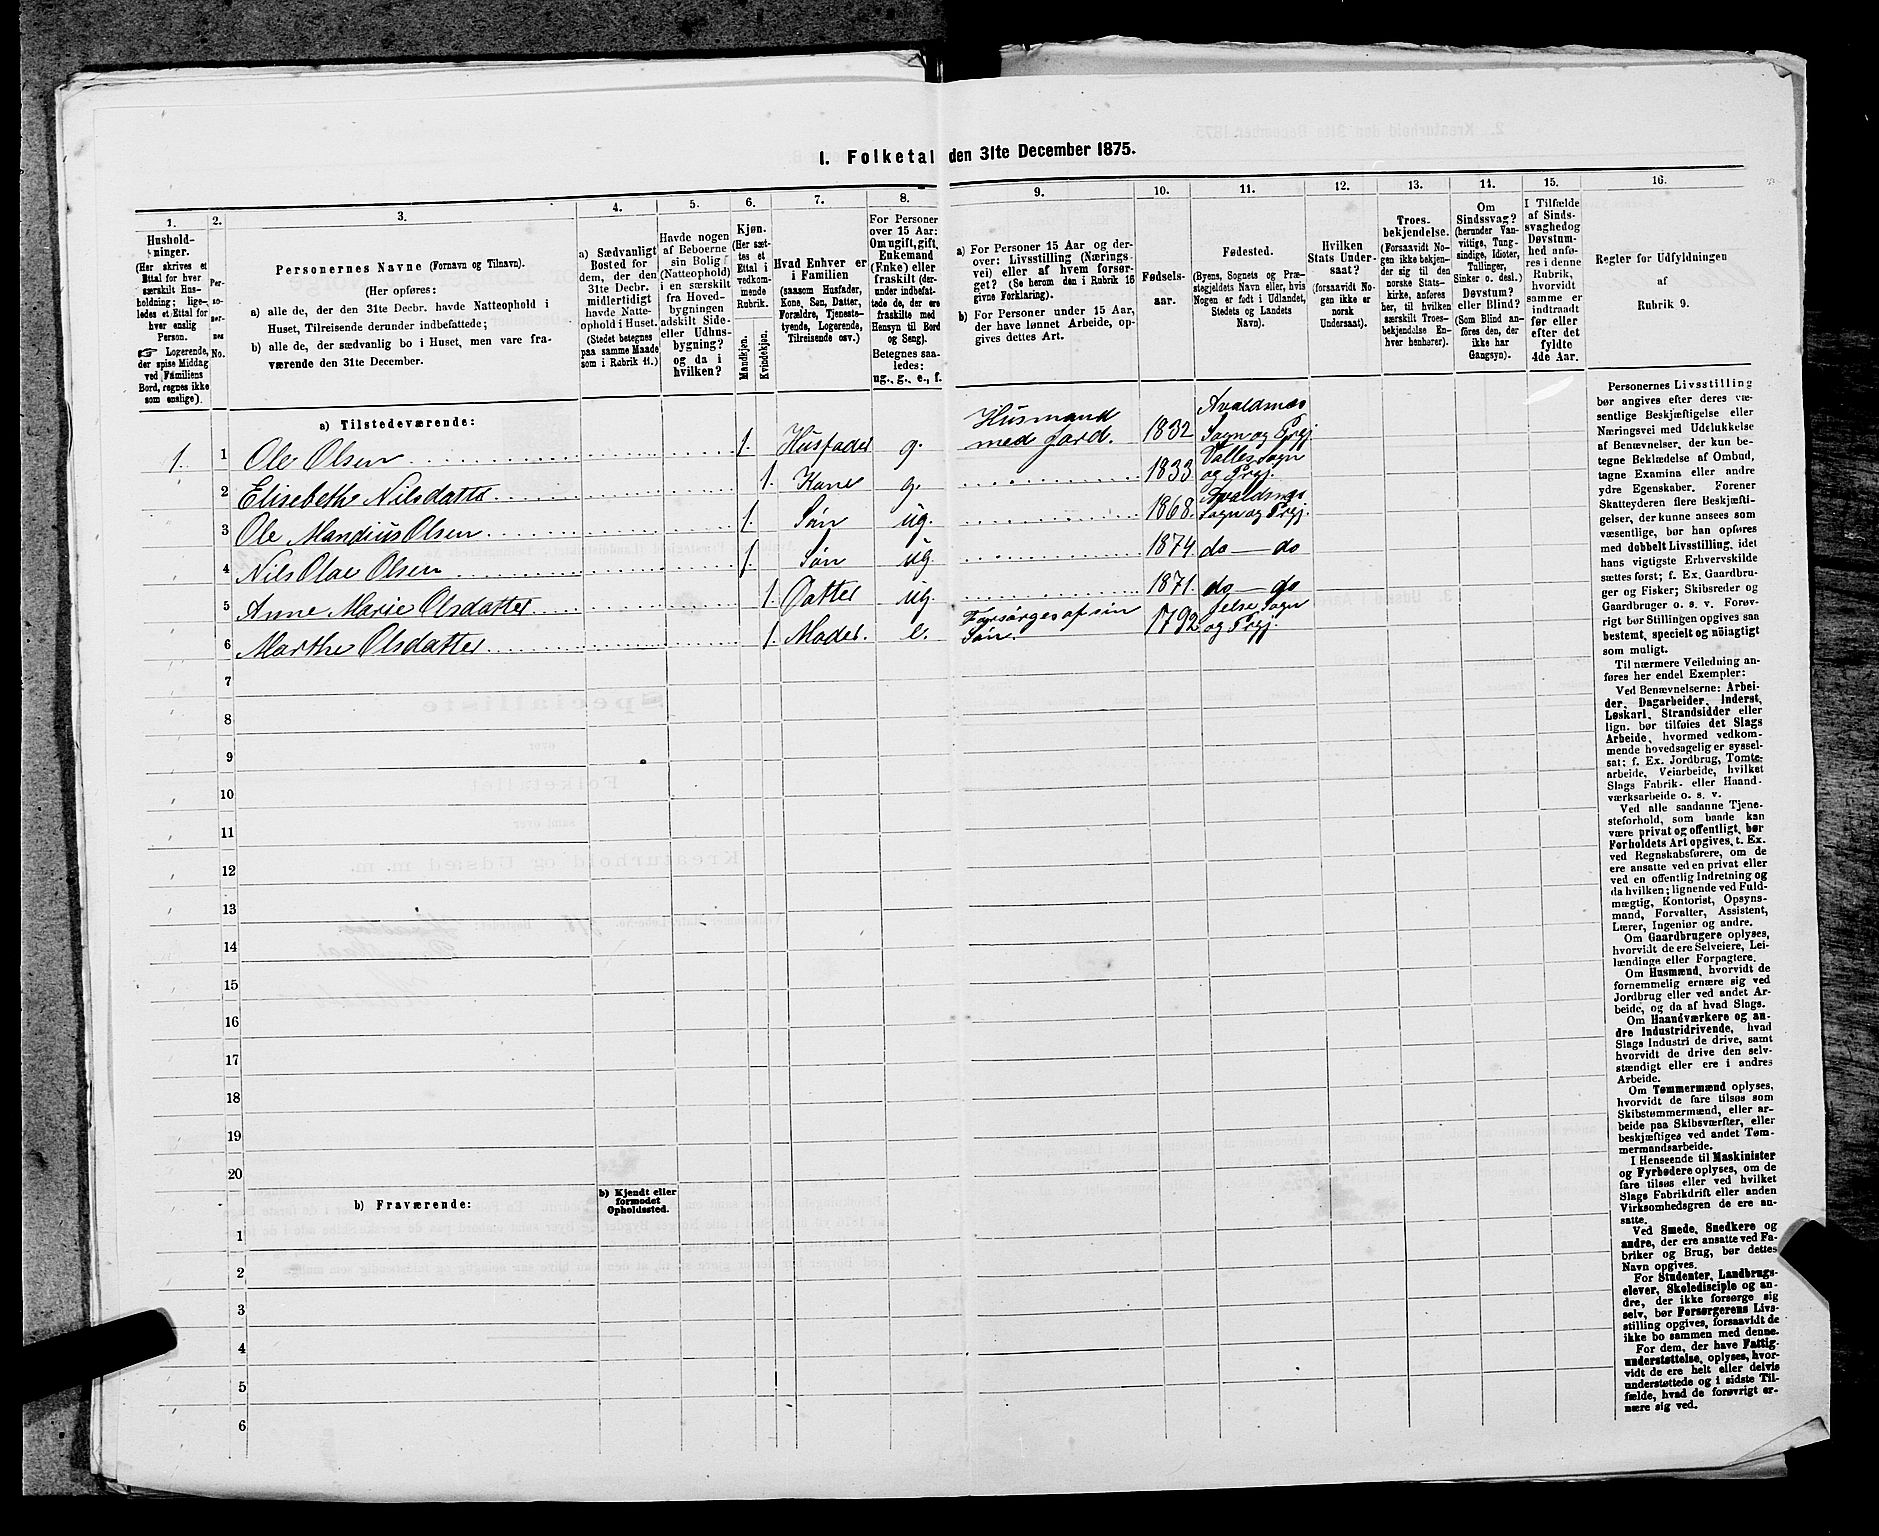 1. Folketal den 31te December 1875.
1.
Hushold-
ninger.
(Her skrives et
Ettal for hver
særskilt Hus-
holdning; lige-
ledes et Ettal for
hver enslig
Person.
☞ Logerende,
der spise Middag
ved Familiens
Bord, regnes ikke
som enslige).
2.
Per-
so-
ner-
nes
No.
3.
Personernes Navne (Fornavn og Tilnavn).
(Her opføres:
a) alle de, der den 31te Decbr. havde Natteophold i
Huset, Tilreisende derunder indbefattede;
b) alle de, der sædvanlig bo i Huset, men vare fra-
værende den 31te December.
4.
a) Sædvanligt
Bosted for
dem, der den
31te Decbr.
midlertidigt
havde Natte-
ophold i Huset.
(Stedet betegnes
paa samme Maade
som i Rubrik 11.)
5.
Havde nogen
af Beboerne
sin Bolig
(Natteophold)
i en særskilt
fra Hoved-
bygningen
adskilt Side-
eller Udhus-
bygning?
og da i
hvilken?
6.
Kjøn.
(Her sæt-
tes et
Ettal i
vedkom-
mende
Rubrik.
Mandkjøn.
Kvindekjøn.
7.
Hvad Enhver er
i Familien
(saasom Husfader,
Kone, Søn, Datter,
Forældre, Tjeneste-
tyende, Logerende,
Tilreisende osv.)
8.
For Personer
over 15 Aar:
Om ugift, gift,
Enkemand
(Enke) eller
fraskilt (der-
under indbefat-
tede de, der ere
fraskilte med
Hensyn til Bord
og Seng).
Betegnes saa-
ledes:
ug., g., e., f.
9.
a) For Personer 15 Aar og der-
over: Livsstilling (Nærings-
vei) eller af hvem forsør-
get? (Se herom den i Rubrik 16
givne Forklaring).
b) For Personer under 15 Aar,
der have lønnet Arbeide, op-
gives dettes Art.
10.
Fødsels-
aar.
11.
Fødested.
(Byens, Sognets og Præ-
stegjeldets Navn eller, hvis
Nogen er født i Udlandet,
Stedets og Landets
Navn).
12.
Hvilken
Stats Under-
saat?
(forsaavidt No-
gen ikke er
norsk
Undersaat).
13.
Troes-
bekjendelse.
(Forsaavidt No-
gen ikke bekjen-
der sig til den
norske Stats-
kirke, anføres
her, til hvilken
særskilt Troes-
bekjendelse En-
hver henhører).
14.
Om
Sindssvag?
(herunder Van-
vittige, Tung-
sindige, Idioter,
Tullinger,
Sinker o. desl.)
Døvstum?
eller Blind?
(Som Blind an-
føres den, der
ikke har
Gangsyn).
15.
I Tilfælde
af Sinds-
svaghed og
Døvstum-
hed anfø-
res i denne
Rubrik,
hvorvidt
samme er
indtraadt
før eller
efter det
fyldte
4de Aar.
16.
Regler for Udfyldningen
af
Rubrik 9.
a) Tilstedeværende:
1. 1 Ole Olsen 1. Husfader g. Husmand med Jord. 1832 Avaldsnæs Sogn og Prgj.
2 Elisebeth Nilsdatte 1. Kone g. 1833 Valle Sogn og Prgj.
3 Ole Mandius Olsen 1. Søn ug. 1868. Avaldsnæs Sogn og Prgj.
4 Nils Olae Olsen 1. Søn ug 1874 do — do
5 Anne Marie Olsdatter 1. Datter ug 1871. do — do
6 Marthe Olsdatter 1. Moder. e. Forsørges af sin Søn. 1792 Jelse Sogn og Prgj.
7
8
9
10
11
12
13
14
15
16
17
18
19
20
b) Fraværende:
b) Kjendt eller
formodet
Opholdssted.
1
2
3
4
5
6
Personernes Livsstilling
bør angives efter deres væ-
sentlige Beskjæftigelse eller
Næringsvei med Udelukkelse
af Benævnelser, der kun be-
tegne Beklædelse af Ombud,
tagne Examina eller andre
ydre Egenskaber. Forener
Skatteyderen flere Beskjæfti-
gelser, der kunne ansees som
væsentlige, bør han opføres
med dobbelt Livsstilling, idet
hans vigtigste Erhvervskilde
sættes først; f. Ex. Gaardbru-
ger og Fisker; Skibsreder og
Gaardbruger o. s. v. Forøv-
rigt bør Stillingen opgives saa
bestemt, specielt og nöiagtigt
som muligt.
Til nærmere Veiledning an-
føres her endel Exempler:
Ved Benævnelserne: Arbei-
der, Dagarbeider, Inderst,
Løskarl, Strandsidder eller
lign. bør tilføies det Slags
Arbeide, hvormed vedkom-
mende hovedsagelig er syssel-
sat; f. Ex. Jordbrug, Tomte-
arbeide, Veiarbeide, hvilket
Slags Fabrik- eller Haand-
værksarbeide o. s. v.
Ved alle saadanne Tjene-
steforhold, som baade kan
være privat og offentligt, bør
Forholdets Art opgives, t. Ex.
ved Regnskabsførere, om de
ere ansatte ved en privat eller
ved en offentlig Indretning og
da hvilken; lignende ved Fuld-
mægtig, Kontorist, Opsyns-
mand, Forvalter, Assistent,
Lærer, Ingeniør og andre.
Om Gaardbrugere oplyses,
hvorvidt de ere Selveiere, Lei-
lændinge eller Forpagtere.
Om Husmænd, hvorvidt de
fornemmelig ernære sig ved
Jordbrug eller ved andet Ar-
beide, og da af hvad Slags.
Om Haandværkere og an-
dre Industridrivende, hvad
Slags Industri de drive, samt
hvorvidt de drive den selv-
stændigt eller ere i andres
Arbeide.
Om Tømmermænd oplyses,
hvorvidt de fare tilsøs som
Skibstømmermænd, eller ar-
beide paa Skibsværfter, eller
beskjæftiges ved andet Tøm-
mermandsarbeide.
I Henseende til Maskinister
og Fyrbødere oplyses, om de
fare tilsøs eller ved hvilket
Slags Fabrikdrift eller anden
Virksomhedsgren de ere an-
satte.
Ved Smede, Snedkere og
andre, der ere ansatte ved Fa-
briker og Brug, bør dettes
Navn opgives.
For Studenter, Landbrugs-
elever, Skoledisciple og an-
dre, der ikke forsørge sig
selv, bør Forsørgerens Livs-
stilling opgives, forsaavidt de
ikke bo sammen med denne.
For dem, der have Fattig-
understøttelse, oplyses, hvor-
vidt de ere helt eller delvis
understøttede og i sidste Til-
fælde, hvad de forøvrigt er-
nære sig ved.